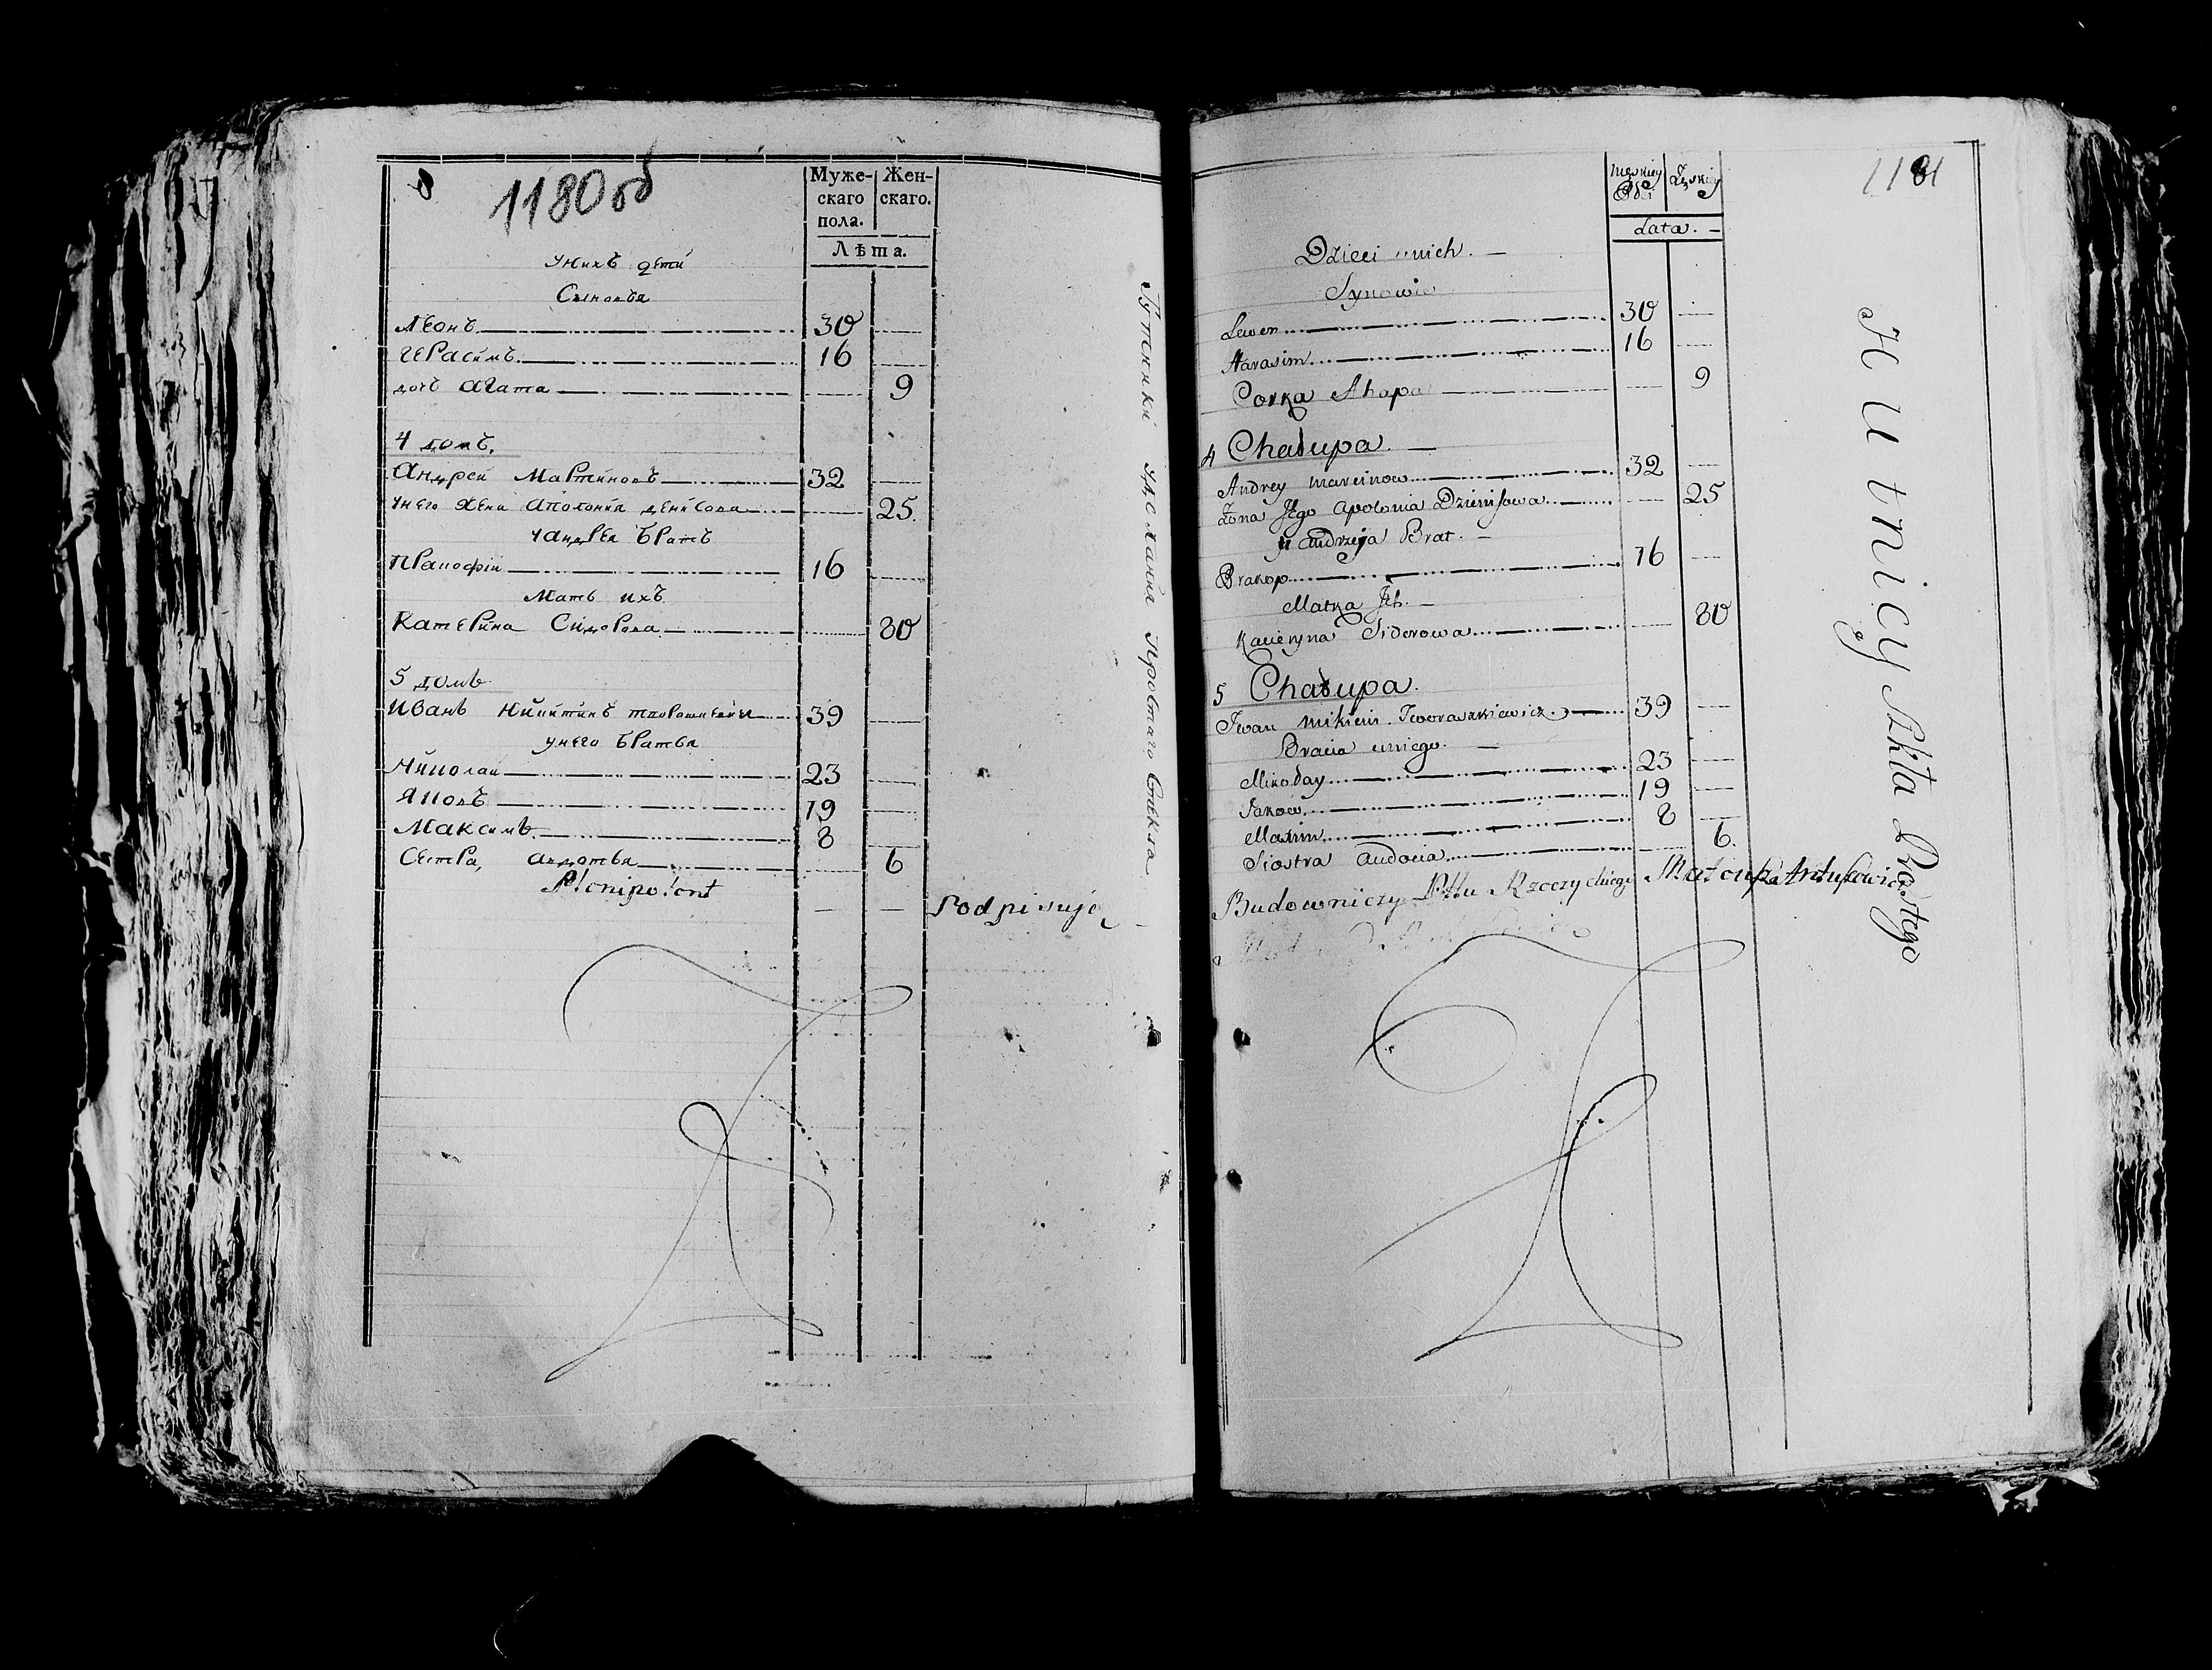 8
1180 об
Муже-
скаго
пола.
Жен-
скаго.
Лѣта.
унихъ дети
Сыновья
Леонъ 30
Герасимъ 16
дочь Агата 9
4 домъ.
Андреи Мартиновъ 32
унего жена Аполония денисова 25
уандрея братъ
Прапофiи 16
Мать ихъ
Катерина Сидорова 80
5 домъ
Иванъ Никитинъ 39
унего братья
Николаи 23
Яковъ 19
Максимъ 8
Сестра, авдотья 6
Plenipotent
Podpisuję
Гутники Простаго Стекла
1181
Męskiey
Płci
Żęskiey
Lata.
Dzieci unich.
Synowie
Lewon 30
Harasim 16
Corka Ahapa 9
4 Chałupa.
Andrey Marcinow 32
Żona Jego Apolonia Dzienisowa 25
u Andrzeja Brat.
Prakop 16
Matka Ich.
Kacieryna Siderowa 80
5 Chałupa.
Iwan Mikicin Tworaszkiewicz 39
Bracia uniego.
Mikołay 23
Jakow 19
Maxim 8
Siostra Audocia 6.
Budowniczy Pttu Rzeczyckiego
Hutnicy Szkła Prostego